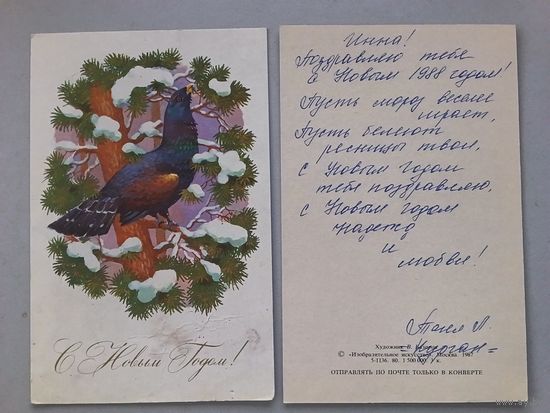 С Новым Годом!
Инна!
Поздравляю тебя
с Новым 1988 годом!
Пусть мороз веселее
играет,
Пусть белеют
ресницы твои,
С Новым годом
тебя поздравляю,
с Новым годом
надежд
и
любви!
Таня Л.
Художник В.
© «Изобразительное искусство». Москва. 1987
5-1136. 80. 1 500 000. к.
ОТПРАВЛЯТЬ ПО ПОЧТЕ ТОЛЬКО В КОНВЕРТЕ